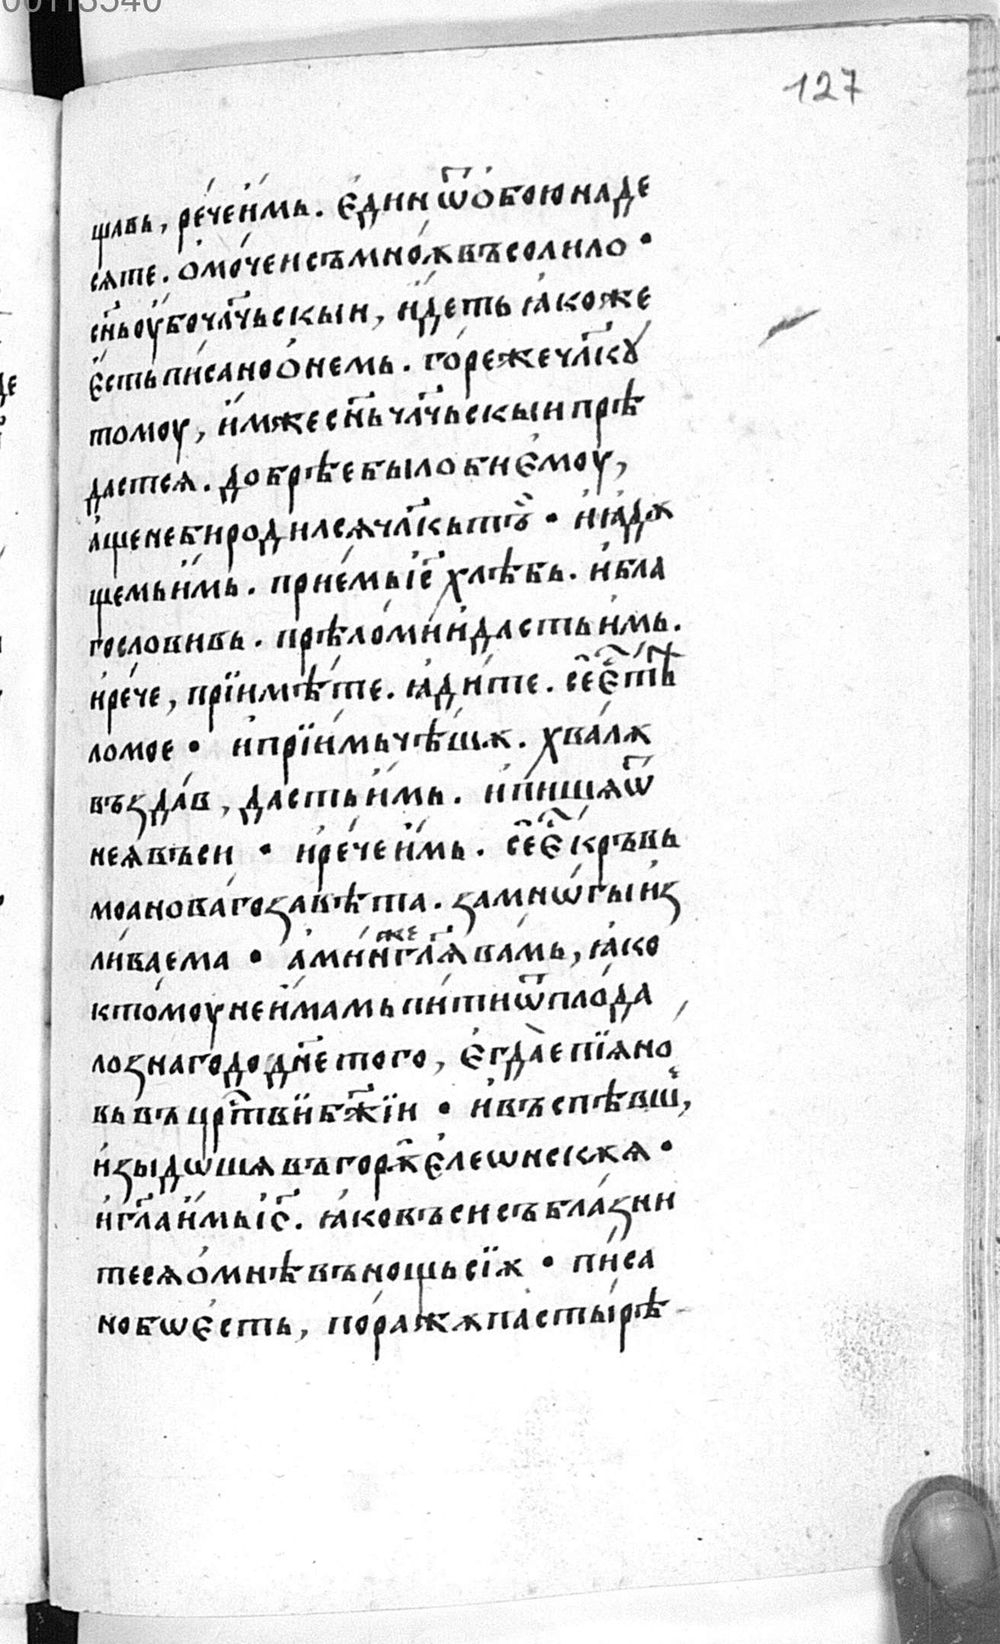 00113540
127
щавь, рече имь. Єдин ѿ обоюнаде
сѧте. омочеи съмноѫ въ солило •
сн҃ь оубо чл҃чьскыи, идеть ꙗкоже
єсть писано о немь. горе же чл҃кꙋ
томоу, имже сн҃ь чл҃чьскыи прѣ
дастсѧ. добрѣе было би ємоу,
аще не би родилсѧ чл҃кь тъ • и ꙗдѫ
щемь имь. приемь іс҃ хлѣбь. и бла
гословивь. прѣломи и дасть имь.
и рече, прїимѣте. ꙗдите. се є҃ тѣ
ло мое • и прїимь чѣшѫ. хвалѫ
въздав, дасть имь. и пишѧ ѿ
неѧ въси • и рече имь. се є҃ кръвь
моа новаго завѣта. за мнѡгы из
ливаема • амин же гл҃ѧ вамь, ꙗко
к томоу не имамь пити ѿ плода
лознаго до дн҃е того, єгда е пїѧ но
вь въ цр҃тви б҃жїи • и въспѣвш,
изыдѡшѧ въ горѫ єлеѡнскѫѧ •
и гл҃а имь іс҃. ꙗко въси съблазни
тесѧ о мнѣ въ нощь сїѫ • писа
но бѡ єсть, поражѫ пастырѣ